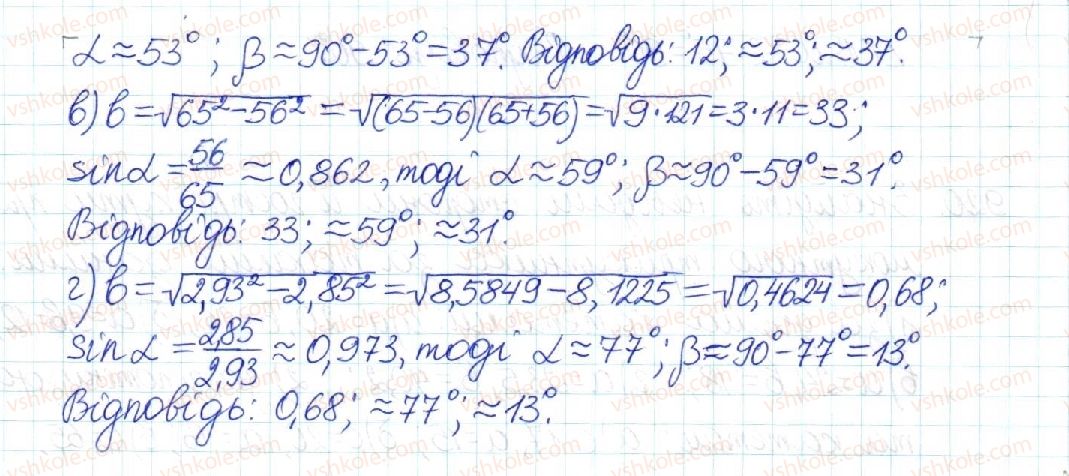 α ≈ 53°; β ≈ 90° − 53° = 37°. Відповідь: 12; ≈ 53°; ≈ 37°.
в) b = √(65² − 56²) = √((65 − 56)(65 + 56)) = √(9 · 121) = 3 · 11 = 33;
sin α = 56/65 ≈ 0,862, тоді α ≈ 59°; β ≈ 90° − 59° = 31°.
Відповідь: 33; ≈ 59°; ≈ 31°.
г) b = √(2,93² − 2,85²) = √(8,5849 − 8,1225) = √0,4624 = 0,68;
sin α = 2,85/2,93 ≈ 0,973, тоді α ≈ 77°; β ≈ 90° − 77° = 13°.
Відповідь: 0,68; ≈ 77°; ≈ 13°.
vshkole.com